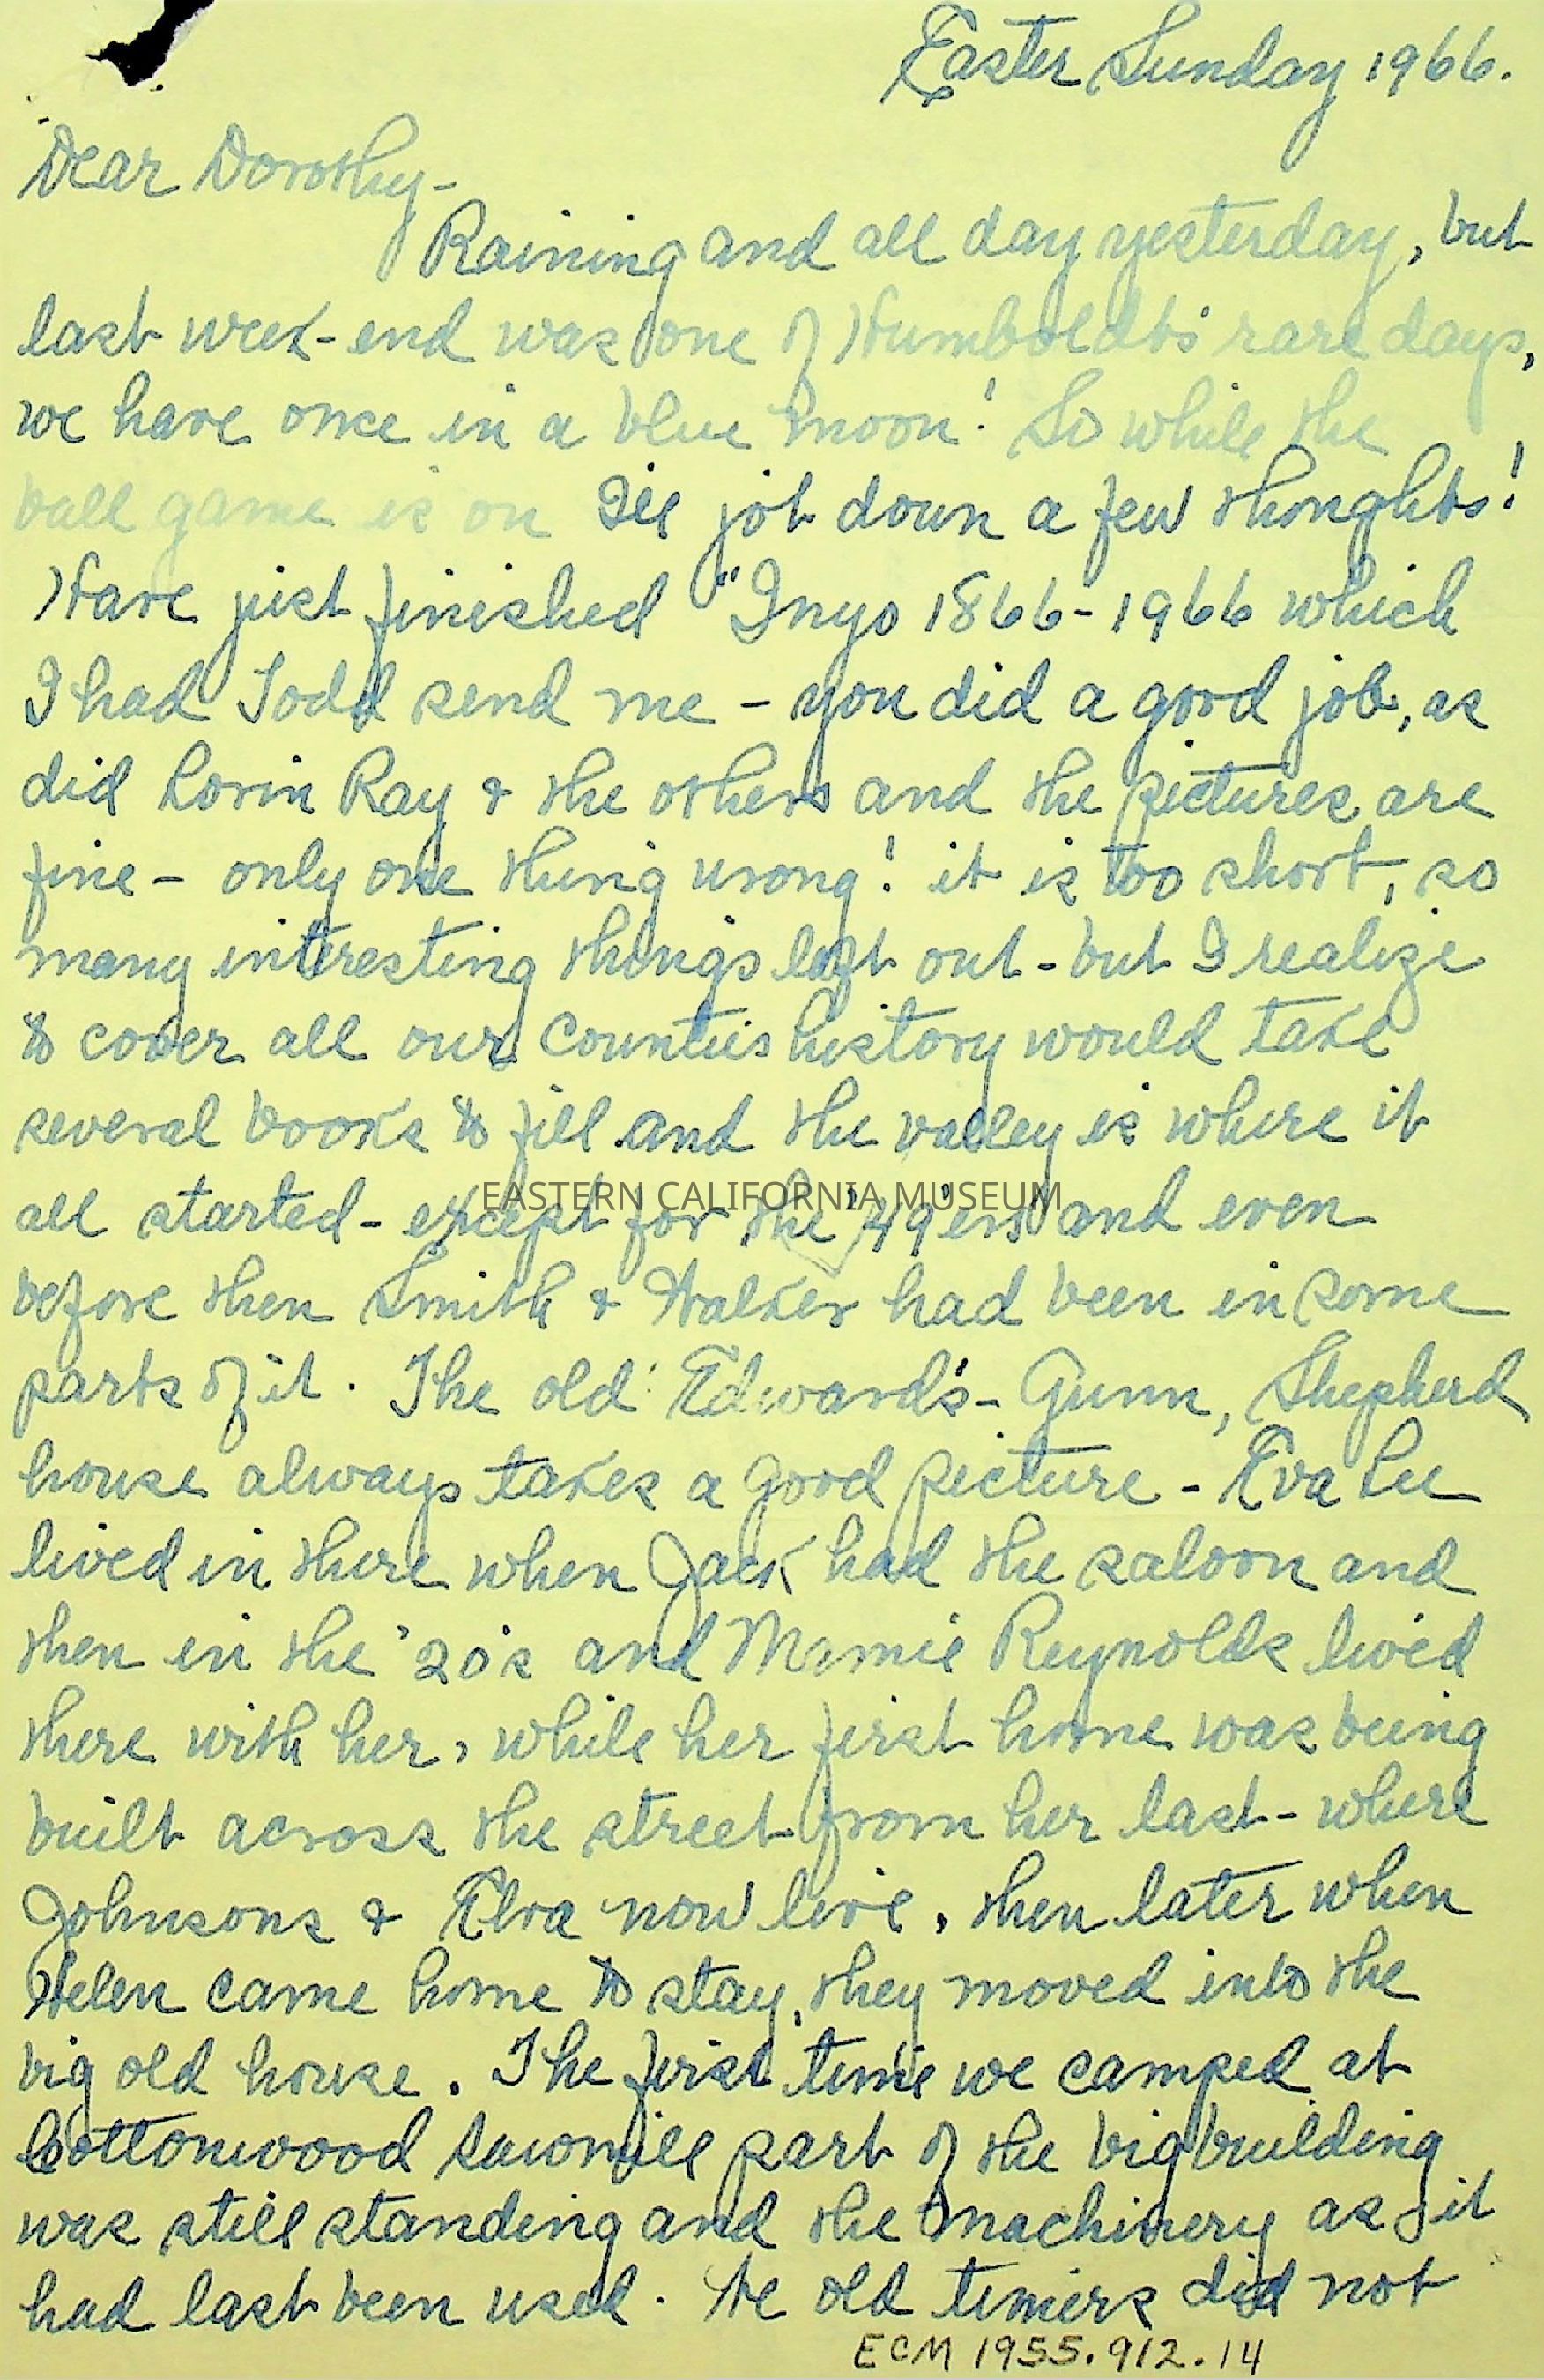 Easter Sunday 1966.
Dear Dorothy-
Raining and all day yesterday, but
last week-end was one of Humboldts rare days,
we have once in a blue moon! So while the
ball game is on I'll jot down a few thoughts!
Have just finished "Inyo 1866-1966 which
I had Todd send me - you did a good job, as
did Lorin Ray & the others and the pictures are
fine - only one thing wrong! it is too short, so
many interesting things left out - but I realize
to cover all our Counties history would take
several books to fill and the valley is where it
all started - except for the '49'ers and even
EASTERN CALIFORNIA MUSEUM
before then Smith & Walker had been in some
parts of it. The old Edward's - Gunn, Shepherd
house always takes a good picture - Eva Lee
lived in there when Jack had the saloon and
then in the '20's and Mamie Reynolds lived
there with her, while her first home was being
built across the street from her last - where
Johnsons & Elva now live, then later when
Helen came home to stay, they moved into the
big old house. The first time we camped at
Cottonwood Sawmill part of the big building
was still standing and the machinery as it
had last been used. We old timers did not
ECM 1955.912.14